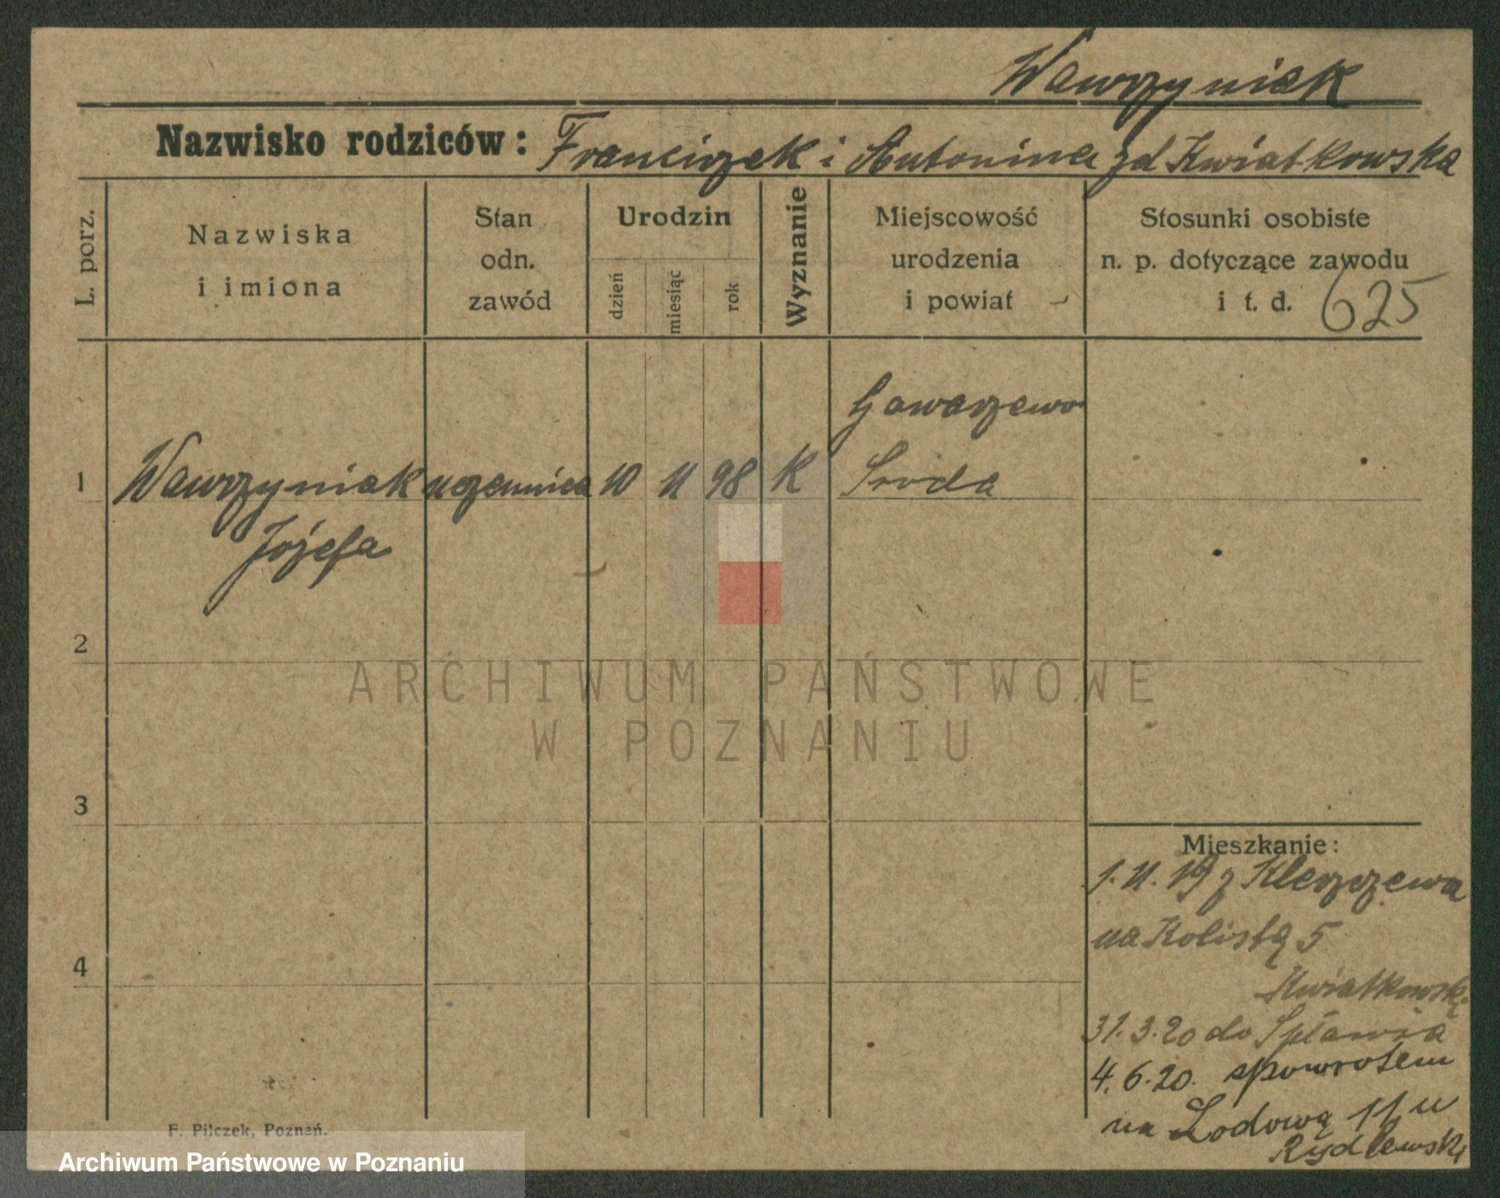 Wawrzyniak
Nazwisko rodziców: Franciszek i Antonina zd Kwiatkowska
L. porz.
Nazwiska
i imiona
Stan
odn.
zawód
Urodzin
dzień
miesiąc
rok
Wyznanie
Miejscowość
urodzenia
i powiat
Stosunki osobiste
n. p. dotyczące zawodu
i t. d. 625
Gowarzewo
1 Wawrzyniak uczennica 10 11 98 K Sroda
Józefa
2
ARCHIWUM PAŃSTWOWE
W POZNANIU
3
Mieszkanie:
1.11.19 z Kleszczewa
na Kolistą 5
4
Kwiatkowsk.
31.3.20 do Spławia
4.6.20. spowrotem
na Lodową 11 u
Rydlewski
F. Pilczek, Poznań.
Archiwum Państwowe w Poznaniu